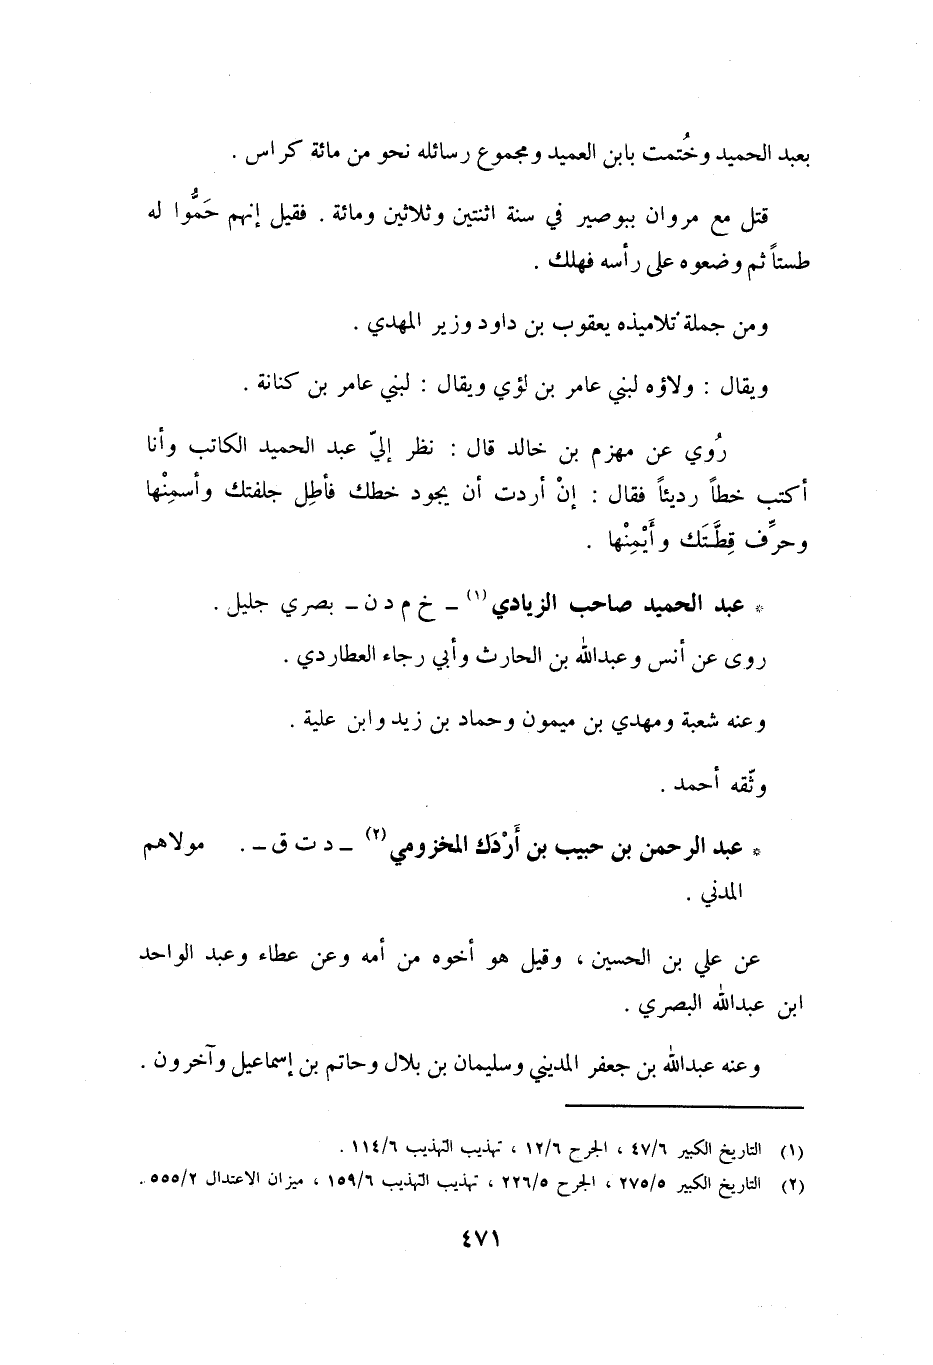 بعبد الحميد وخُتمت بابن العميد ومجموع رسائله نحو من مائة كراس .
قتل مع مروان ببوصير في سنة اثنتين وثلاثين ومائة . فقيل إنهم حَمُّوا له
طستاً ثم وضعوه على رأسه فهلك .
ومن جملة تلاميذه يعقوب بن داود وزير المهدي .
ويقال : ولاؤه لبني عامر بن لؤي ويقال : لبني عامر بن كنانة .
رُوي عن مهزم بن خالد قال : نظر إليّ عبد الحميد الكاتب وأنا
أكتب خطاً رديئاً فقال : إنْ أردت أن يجود خطك فأطِل جلفتك وأسمِنْها
وحرِّف قِطَّتَك وأَيْمِنْها .
* عبد الحميد صاحب الزيادي (١) ـ خ م د ن ـ بصري جليل .
روى عن أنس وعبدالله بن الحارث وأبي رجاء العطاردي .
وعنه شعبة ومهدي بن ميمون وحماد بن زيد وابن علية .
وثّقه أحمد .
* عبد الرحمن بن حبيب بن أَرْدَك المخزومي (٢) ـ د ت ق ـ . مولاهم
المدني .
عن علي بن الحسين ، وقيل هو أخوه من أمه وعن عطاء وعبد الواحد
ابن عبدالله البصري .
وعنه عبدالله بن جعفر المديني وسليمان بن بلال وحاتم بن إسماعيل وآخرون .
(١) التاريخ الكبير ٤٧/٦ ، الجرح ١٢/٦ ، تهذيب التهذيب ١١٤/٦ .
(٢) التاريخ الكبير ٢٧٥/٥ ، الجرح ٢٢٦/٥ ، تهذيب التهذيب ١٥٩/٦ ، ميزان الاعتدال ٥٥٥/٢ .
٤٧١